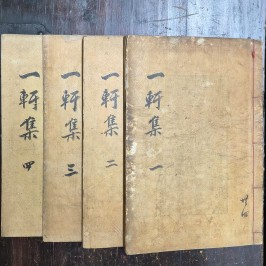 一軒集 一
共四
一軒集 二
一軒集 三
一軒集 四